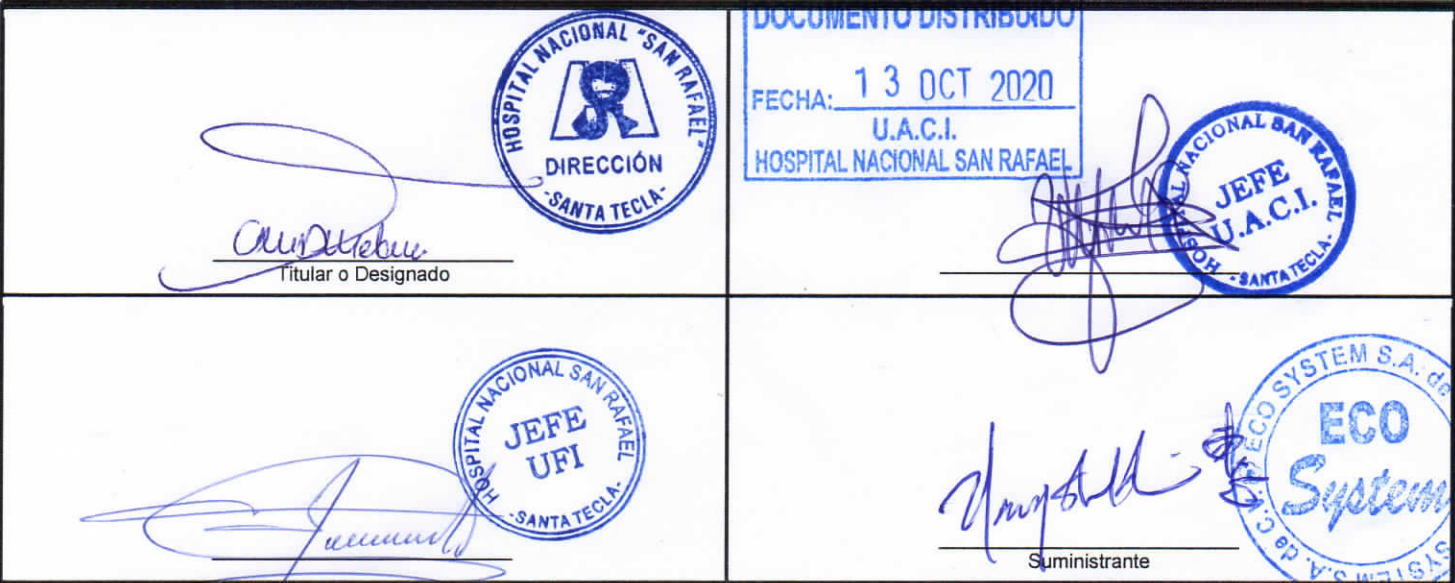 HOSPITAL NACIONAL "SAN RAFAEL"
DIRECCIÓN
-SANTA TECLA-
Titular o Designado
DOCUMENTO DISTRIBUIDO
FECHA: 13 OCT 2020
U.A.C.I.
HOSPITAL NACIONAL SAN RAFAEL
HOSPITAL NACIONAL SAN RAFAEL
JEFE
U.A.C.I.
-SANTA TECLA-
HOSPITAL NACIONAL SAN RAFAEL
JEFE
UFI
-SANTA TECLA-
ECO SYSTEM S.A. de C.V.
ECO
System
SYSTEM S.A. de C.V.
Suministrante